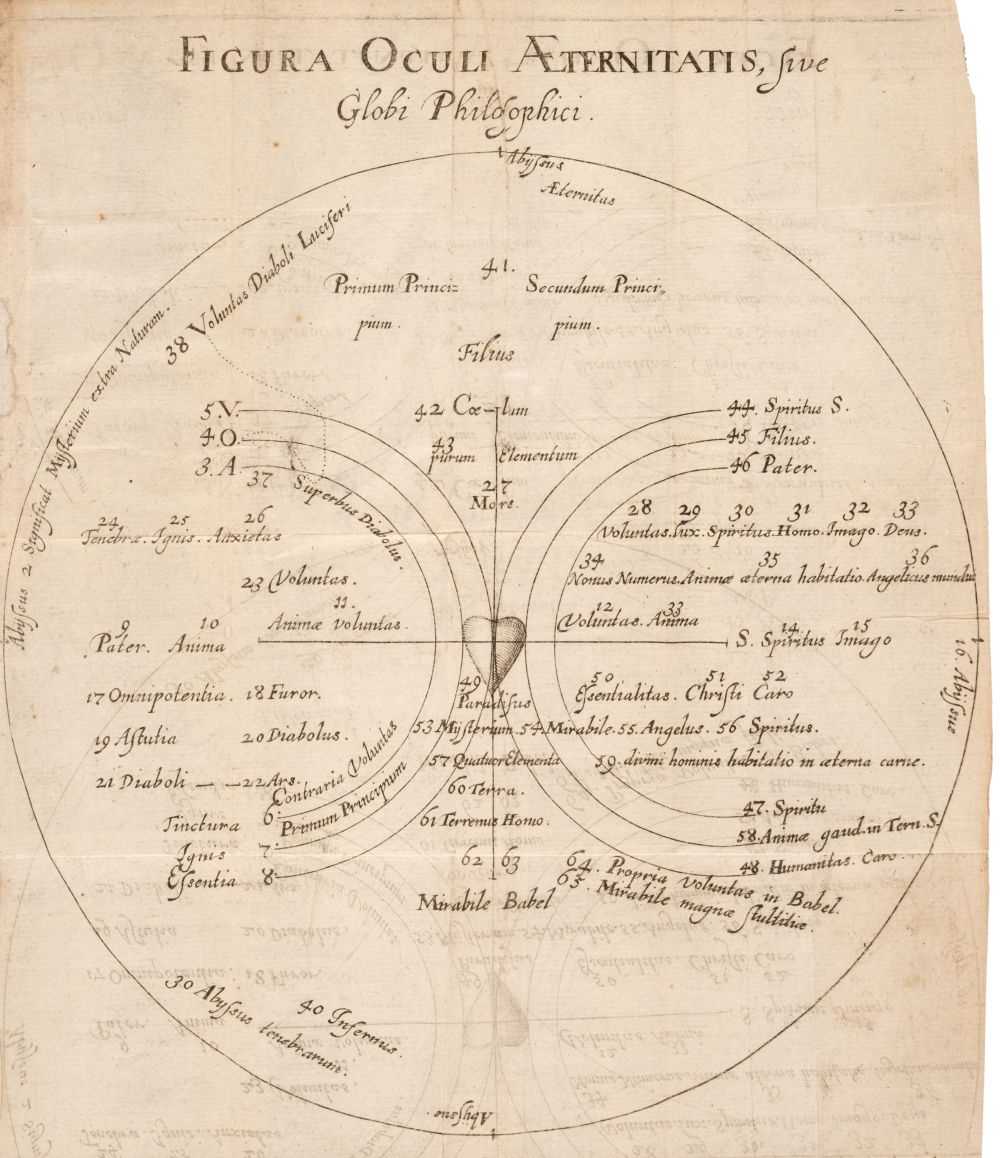 FIGURA OCULI ÆTERNITATIS, sive
Globi Philosophici.
1 Abyssus
Æternitas
38 Voluntas Diaboli Luciferi
Abyssus 2 Significat Mysterium extra Naturam.
41.
Primum Princi=
pium.
Secundum Princi,
pium.
Filius
5. V.
4. O.
3. A.
37 Superbus Diabolus.
42 Cœ-lum
43
purum Elementum
27
Mors.
44. Spiritus S.
45 Filius.
46 Pater.
24 25 26
Tenebræ. Ignis. Anxietas
28 29 30 31 32 33
Voluntas. Lux. Spiritus. Homo. Imago. Deus.
34 35 36
Nonus Numerus. Animæ æterna habitatio. Angelicus mundus
23 Voluntas.
11.
Animæ voluntas.
12 33
Voluntas. Anima
9 10
Pater. Anima
14 15
S. Spiritus Imago
16. Abyssus
17 Omnipotentia. 18 Furor.
49
Paradisus
50 51 52
Essentialitas. Christi Caro
19 Astutia 20 Diabolus.
53 Mysterium. 54. Mirabile. 55. Angelus. 56 Spiritus.
21 Diaboli — — 22 Ars.
57 Quatuor Elementa
59. divini hominis habitatio in æterna carne.
Contraria Voluntas
Primum Principium
60 Terra.
Tinctura 6.
Ignis 7.
Essentia 8.
61 Terrenus Homo.
47. Spiritu
58. Animæ gaud. in Tern. S.
48. Humanitas. Caro.
62 63
Mirabile Babel
64. Propria Voluntas in Babel.
65. Mirabile magnæ stultitiæ.
30 Abyssus tenebrarum.
40 Infernus.
Abyssus